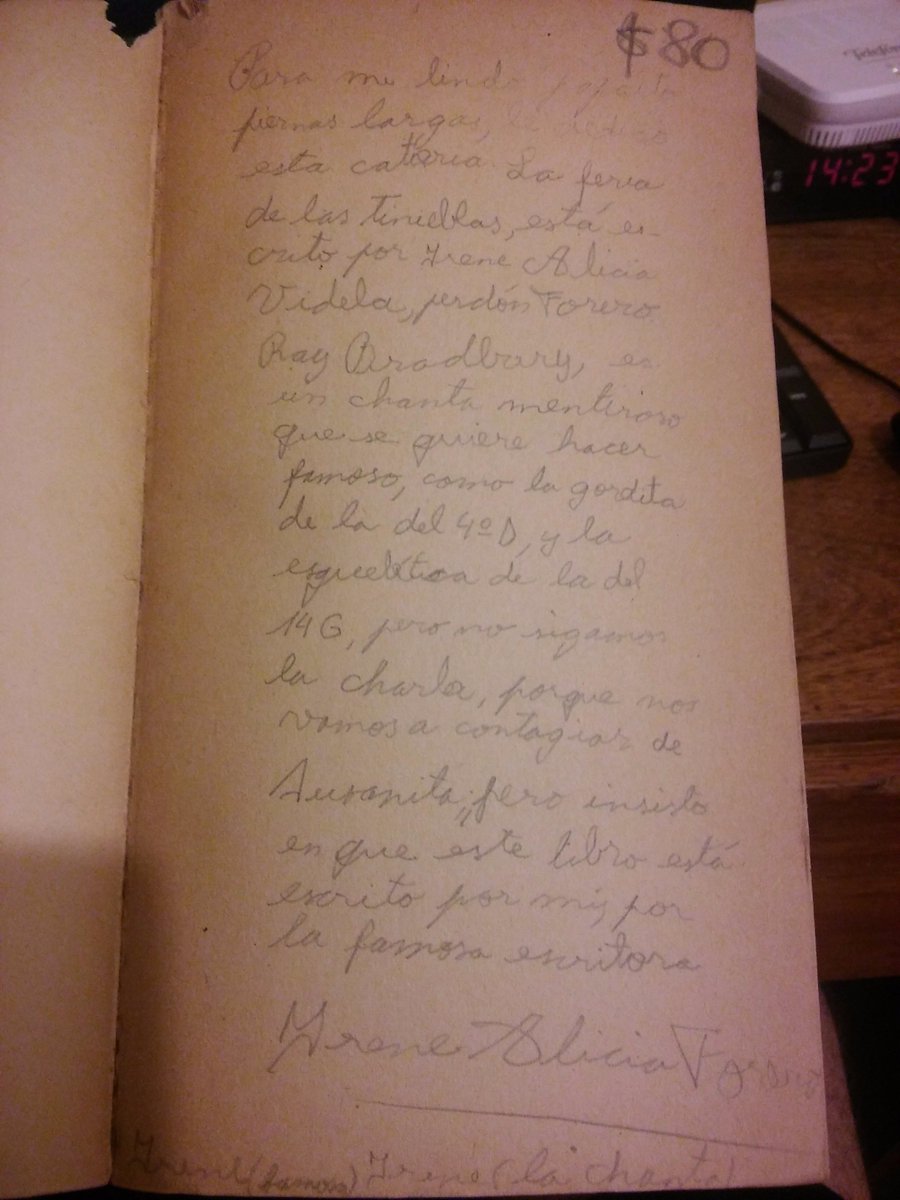 $80
Para mi lindo papaito
piernas largas, le dedico
esta catería La feria
de las tinieblas, está es-
crito por Irene Alicia
Videla, perdón Forero.
Ray Bradbury, es
un chanta mentiroso
que se quiere hacer
famoso, como la gordita
de la del 4º D, y la
esquelética de la del
14 G, pero no sigamos
la charla, porque nos
vamos a contagiar de
Susanita, pero insisto
en que este libro está
escrito por mí, por
la famosa escritora
Irene Alicia Forero
Irene (famosa) Irene (la chanta)
14:23